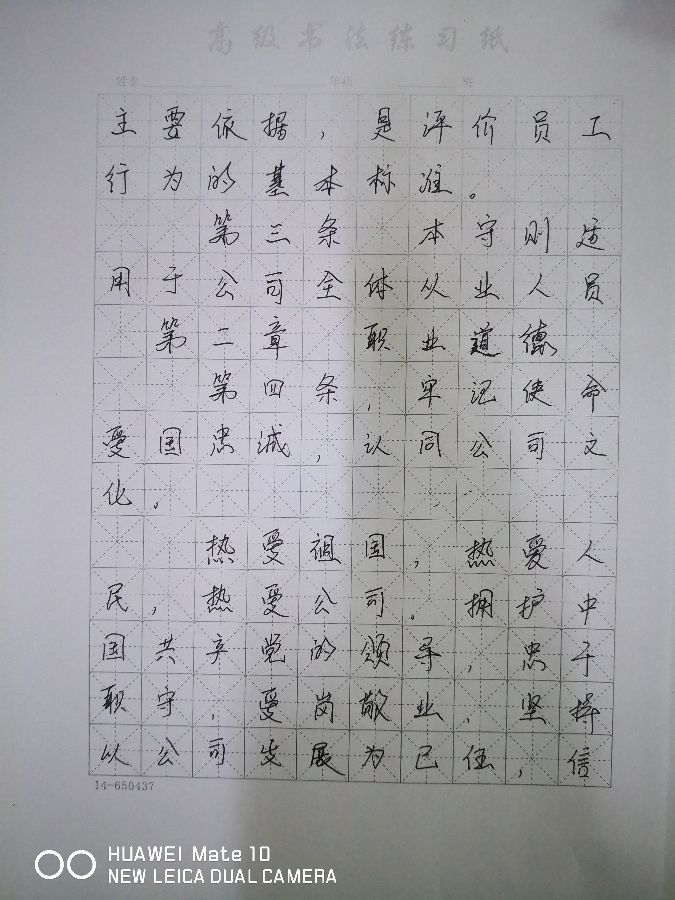 高级书法练习纸
姓名 年级 班
主要依据，是评价员工
行为的基本标准。
第三条 本守则适
用于公司全体从业人员
第二章 职业道德
第四条，牢记使命
爱国忠诚，认同公司文
化。
热爱祖国，热爱人
民，热爱公司。拥护中
国共产党的领导，忠于
职守，爱岗敬业，坚持
以公司发展为己任，信
14-650437
HUAWEI Mate 10
NEW LEICA DUAL CAMERA